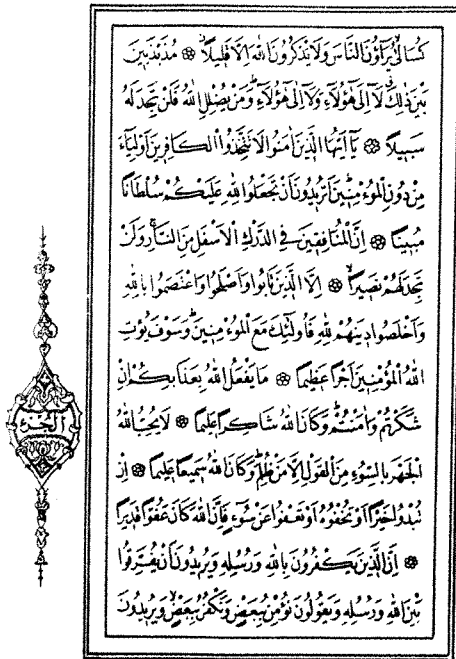 كُسَالٰىۙ يُرَاؤُنَ النَّاسَ وَلَا يَذْكُرُونَ اللّٰهَ اِلَّا قَلٖيلًاۙ ۞ مُذَبْذَبٖينَ
بَيْنَ ذٰلِكَۗ لَٓا اِلٰى هٰٓؤُ۬لَٓاءِ وَلَٓا اِلٰى هٰٓؤُ۬لَٓاءِۜ وَمَنْ يُضْلِلِ اللّٰهُ فَلَنْ تَجِدَ لَهُ
سَبٖيلًا ۞ يَٓا اَيُّهَا الَّذٖينَ اٰمَنُوا لَا تَتَّخِذُوا الْكَافِرٖينَ اَوْلِيَٓاءَ
مِنْ دُونِ الْمُؤْمِنٖينَۜ اَتُرٖيدُونَ اَنْ تَجْعَلُوا لِلّٰهِ عَلَيْكُمْ سُلْطَانًا
مُبٖينًا ۞ اِنَّ الْمُنَافِقٖينَ فِي الدَّرْكِ الْاَسْفَلِ مِنَ النَّارِۚ وَلَنْ
تَجِدَ لَهُمْ نَصٖيرًاۙ ۞ اِلَّا الَّذٖينَ تَابُوا وَاَصْلَحُوا وَاعْتَصَمُوا بِاللّٰهِ
وَاَخْلَصُوا دٖينَهُمْ لِلّٰهِ فَاُو۬لٰٓئِكَ مَعَ الْمُؤْمِنٖينَۜ وَسَوْفَ يُؤْتِ
اللّٰهُ الْمُؤْمِنٖينَ اَجْرًا عَظٖيمًا ۞ مَا يَفْعَلُ اللّٰهُ بِعَذَابِكُمْ اِنْ
شَكَرْتُمْ وَاٰمَنْتُمْۜ وَكَانَ اللّٰهُ شَاكِرًا عَلٖيمًا ۞ لَا يُحِبُّ اللّٰهُ
الْجَهْرَ بِالسُّٓوءِ مِنَ الْقَوْلِ اِلَّا مَنْ ظُلِمَۜ وَكَانَ اللّٰهُ سَمٖيعًا عَلٖيمًا ۞ اِنْ
تُبْدُوا خَيْرًا اَوْ تُخْفُوهُ اَوْ تَعْفُوا عَنْ سُٓوءٍ فَاِنَّ اللّٰهَ كَانَ عَفُوًّا قَدٖيرًا
۞ اِنَّ الَّذٖينَ يَكْفُرُونَ بِاللّٰهِ وَرُسُلِهٖ وَيُرٖيدُونَ اَنْ يُفَرِّقُوا
بَيْنَ اللّٰهِ وَرُسُلِهٖ وَيَقُولُونَ نُؤْمِنُ بِبَعْضٍ وَنَكْفُرُ بِبَعْضٍۙ وَيُرٖيدُونَ
الجزء